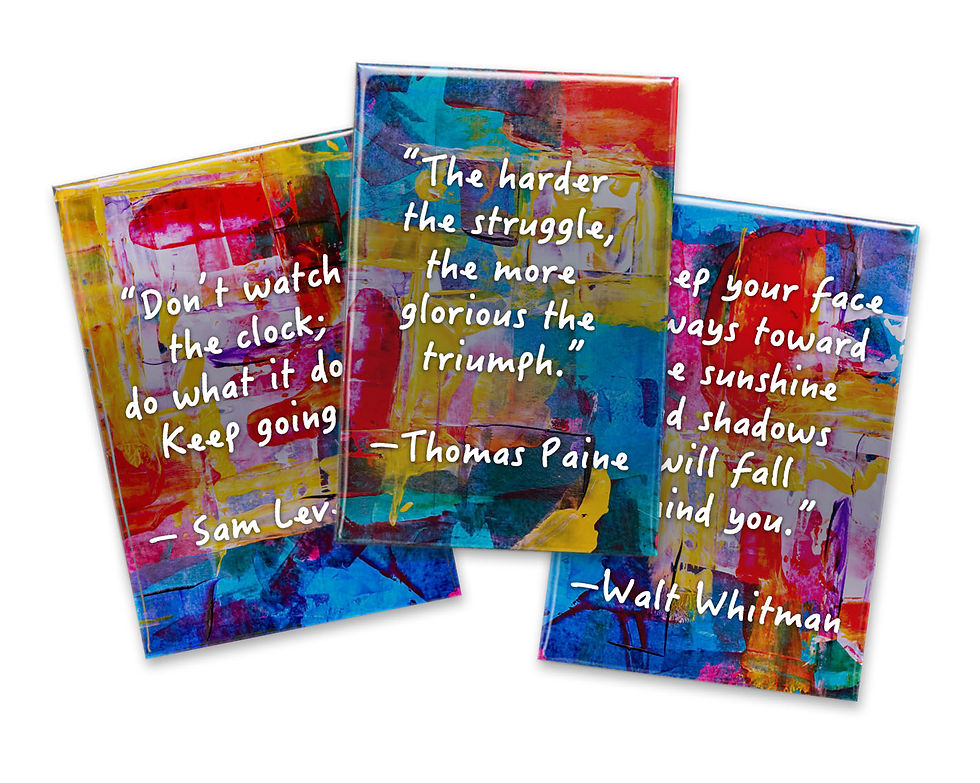 “Don’t watch
the clock;
do what it do
Keep going
— Sam Lev
“The harder
the struggle,
the more
glorious the
triumph.”
—Thomas Paine
ep your face
ways toward
e sunshine
d shadows
will fall
ind you.”
—Walt Whitman